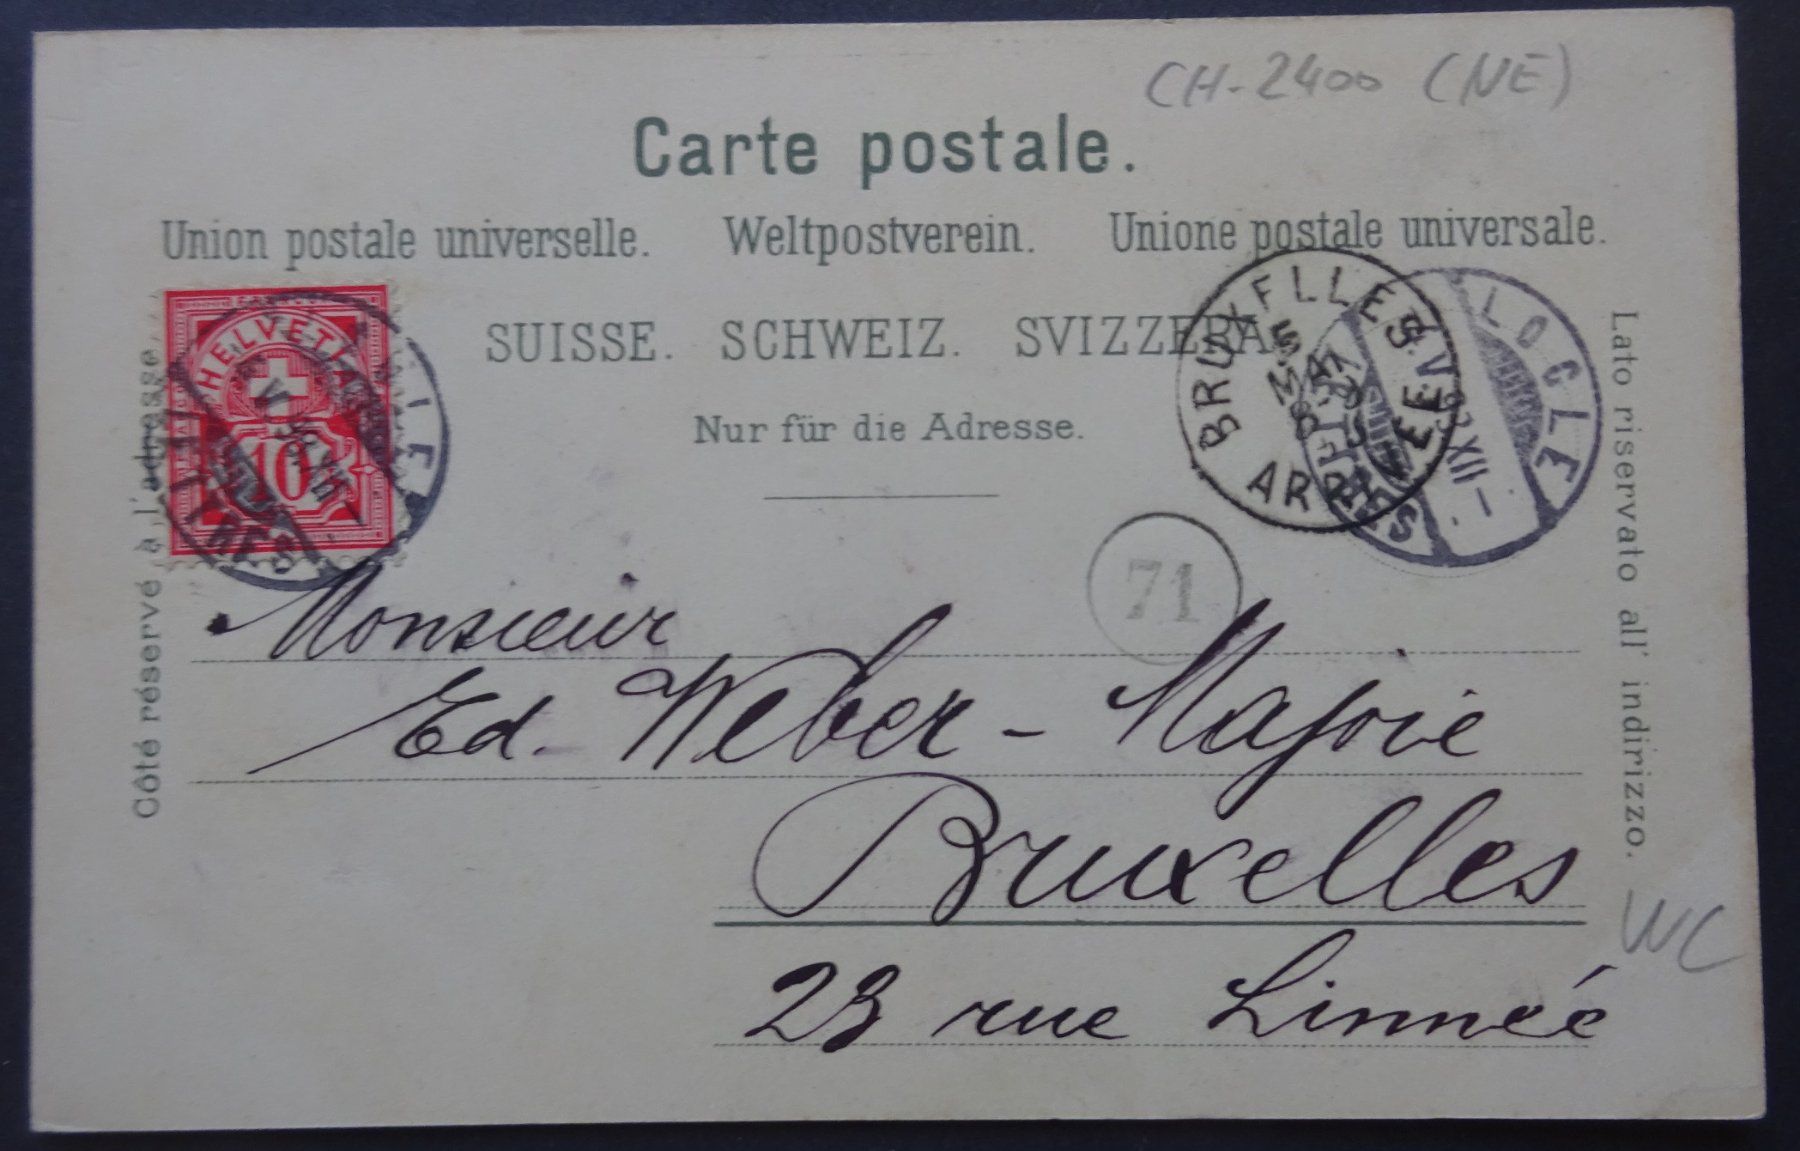 CH-2400 (NE)
Carte postale.
Union postale universelle. Weltpostverein. Unione postale universale.
SUISSE. SCHWEIZ. SVIZZERA.
Nur für die Adresse.
Côté réservé à l'adresse
HELVETIA
10
LOCLE
LETTRES
BRUXELLES
ARRIVEE
LOCLE
LETTRES
71
Lato riservato all' indirizzo.
Monsieur
Ed. Weber-Majoie
Bruxelles
23 rue Linnéé
WC